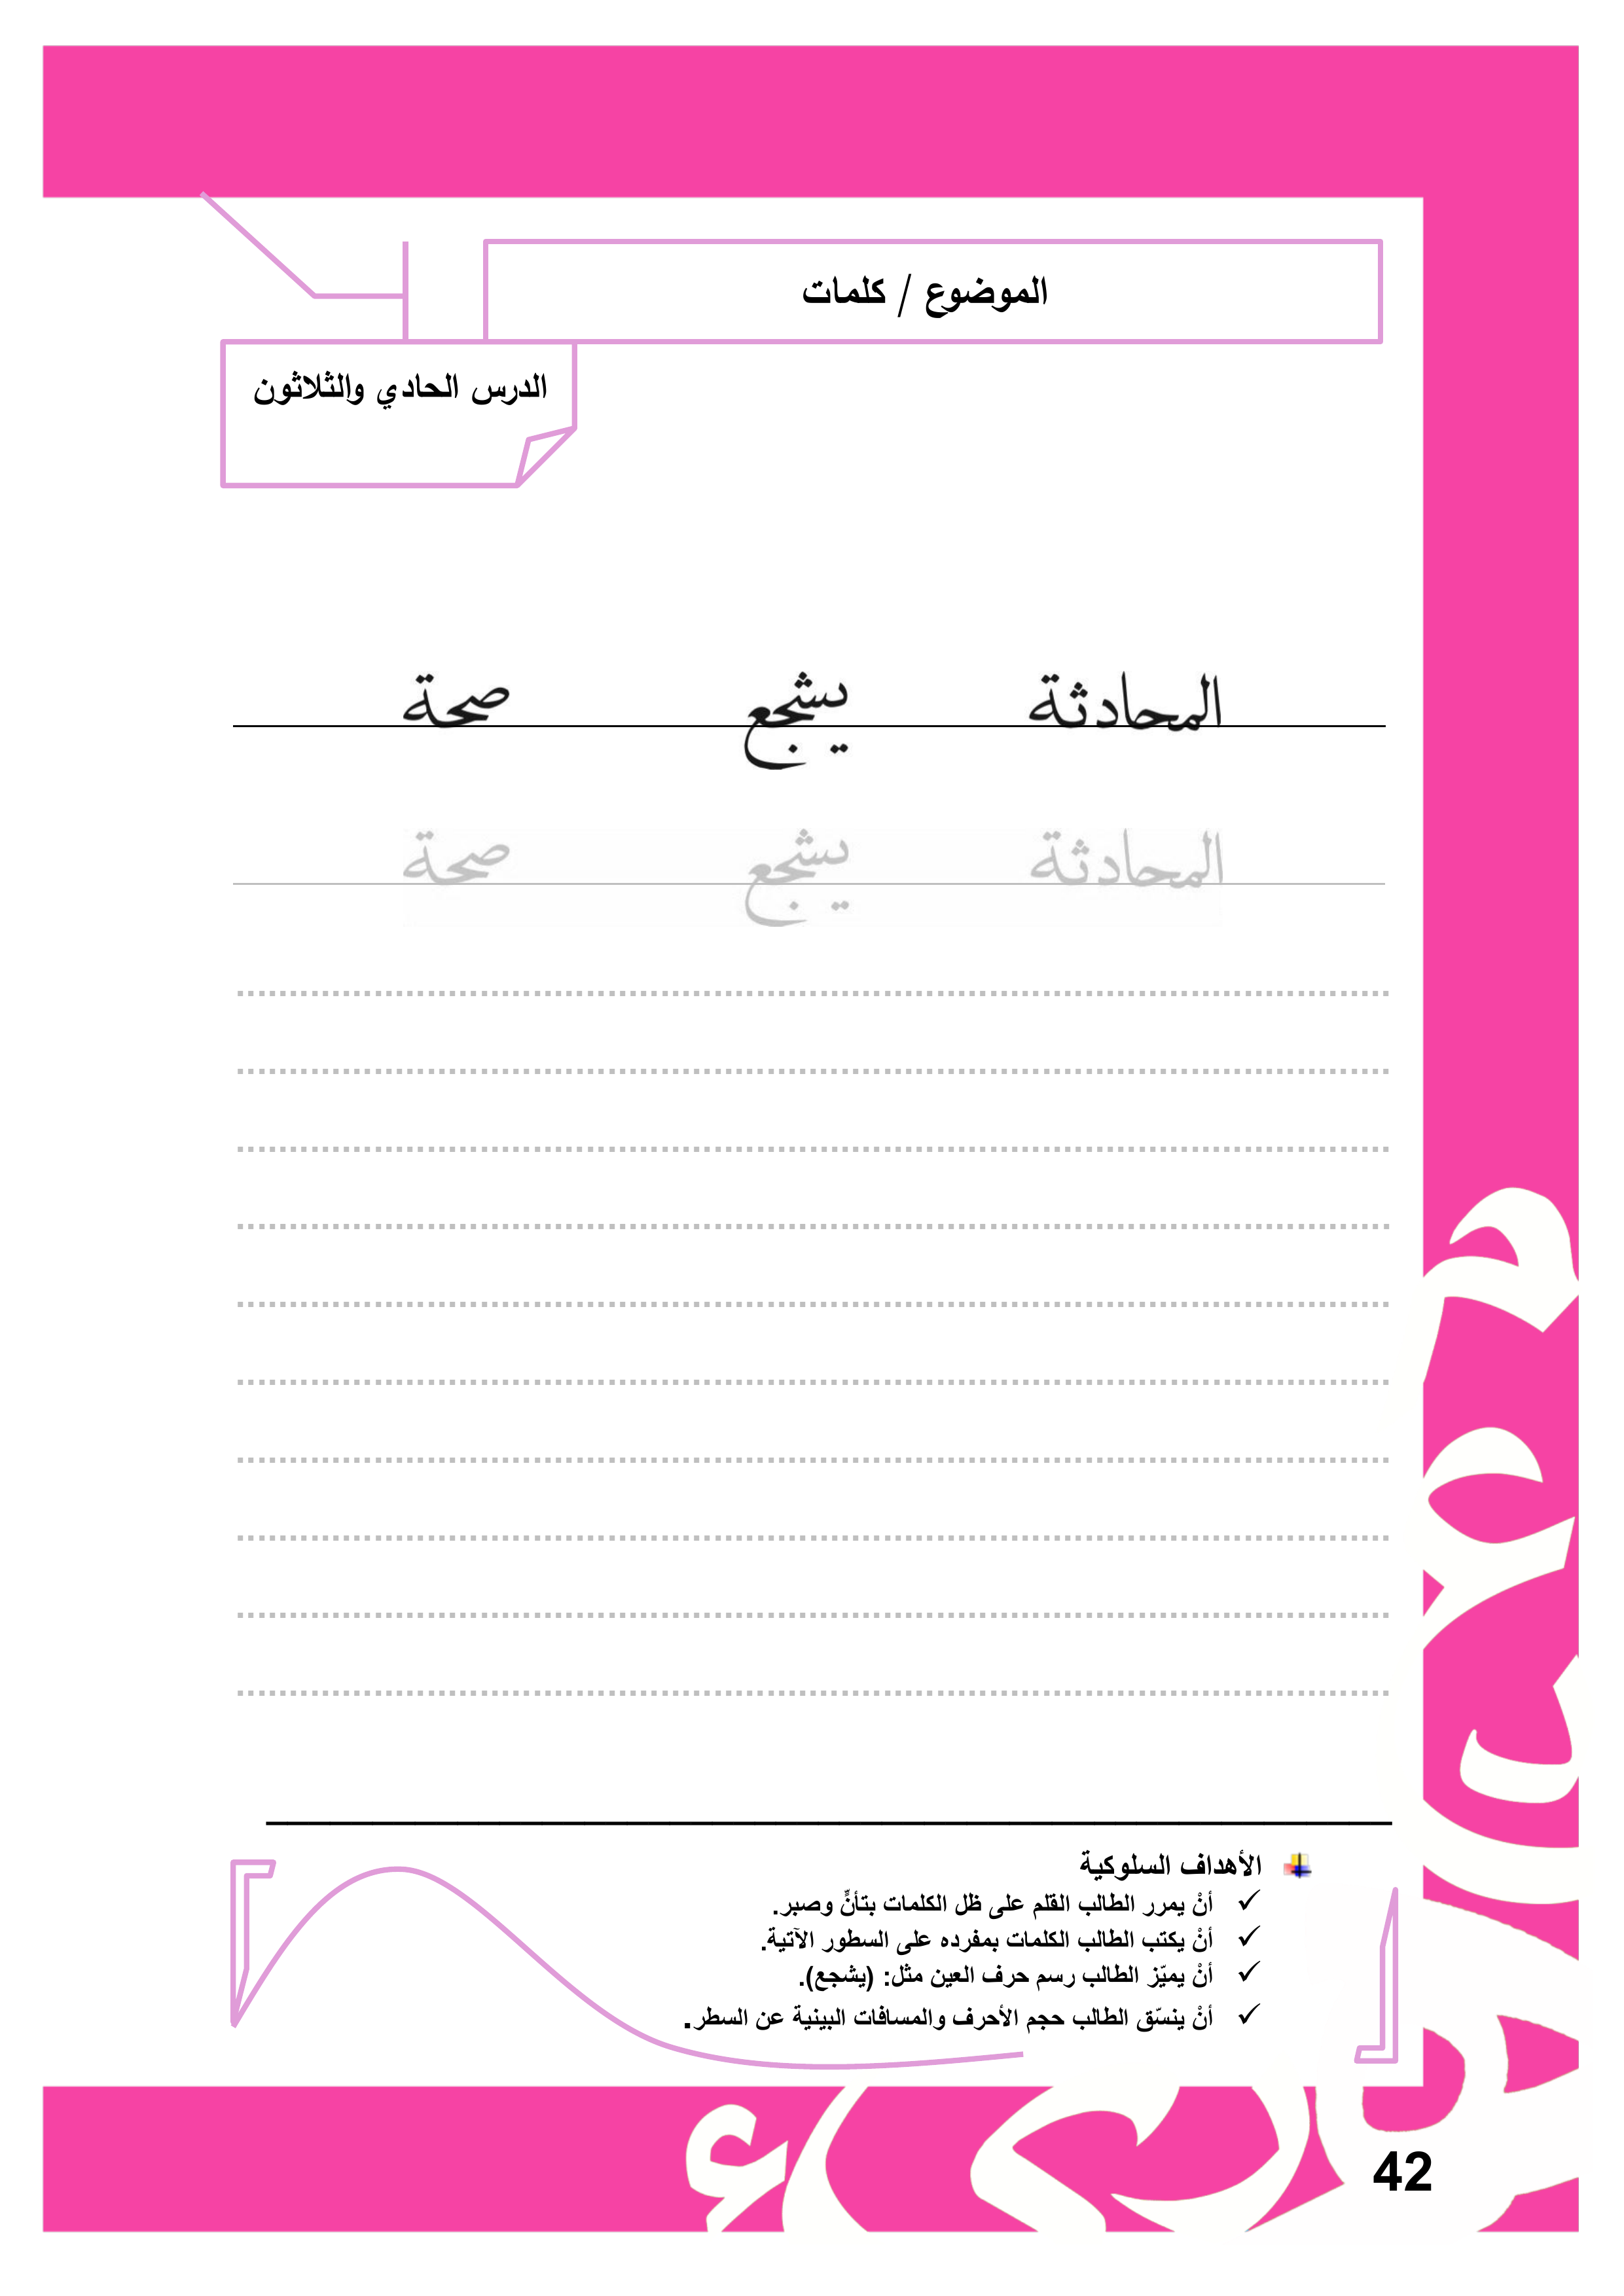 الموضوع / كلمات
الدرس الحادي والثلاثون
المحادثة يشجع صحة
المحادثة يشجع صحة
الأهداف السلوكية
أنْ يمرر الطالب القلم على ظل الكلمات بتأنٍّ وصبر.
أنْ يكتب الطالب الكلمات بمفرده على السطور الآتية.
أنْ يميّز الطالب رسم حرف العين مثل: (يشجع).
أنْ ينسّق الطالب حجم الأحرف والمسافات البينية عن السطر.
42